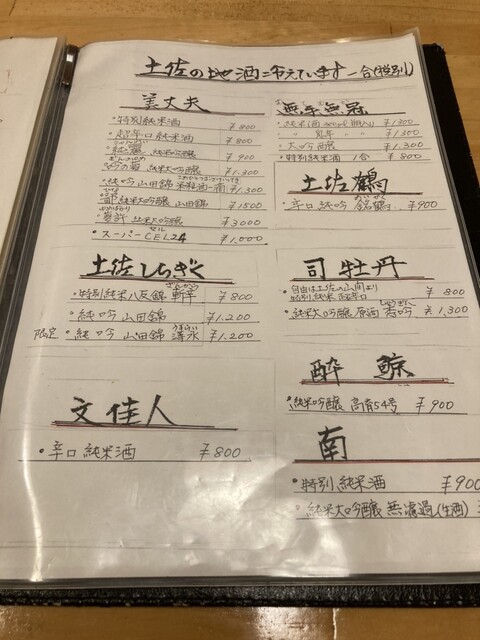 土佐の地酒冷えています 一合(税別)
美丈夫
・特別純米酒 ¥800
・超辛口 純米酒 ¥800
純米吟醸 ¥900
純米大吟醸 ¥1,300
・純吟 山田錦 ¥1,300
純米吟醸 山田錦 ¥1500
夢許 純米大吟醸 ¥3000
・スーパーCEL24 ¥1,000
土佐しらぎく
・特別純米 八反錦 ¥800
・純吟 山田錦 ¥1,200
限定 ・純吟 山田錦 ¥1,200
文佳人
・辛口 純米酒 ¥800
無手無冠
・純米酒 ¥1,300
〃 〃 ¥1,300
・大吟醸 ¥1,300
・特別純米酒 1合 ¥800
土佐鶴
・辛口 純吟 ¥900
司牡丹
・自由は土佐の山間より
特別純米 超辛口 ¥800
・純米大吟醸原酒 ¥1,300
酔鯨
・純米吟醸 高育54号 ¥900
南
・特別純米酒 ¥900
・純米大吟醸 無濾過(生酒)